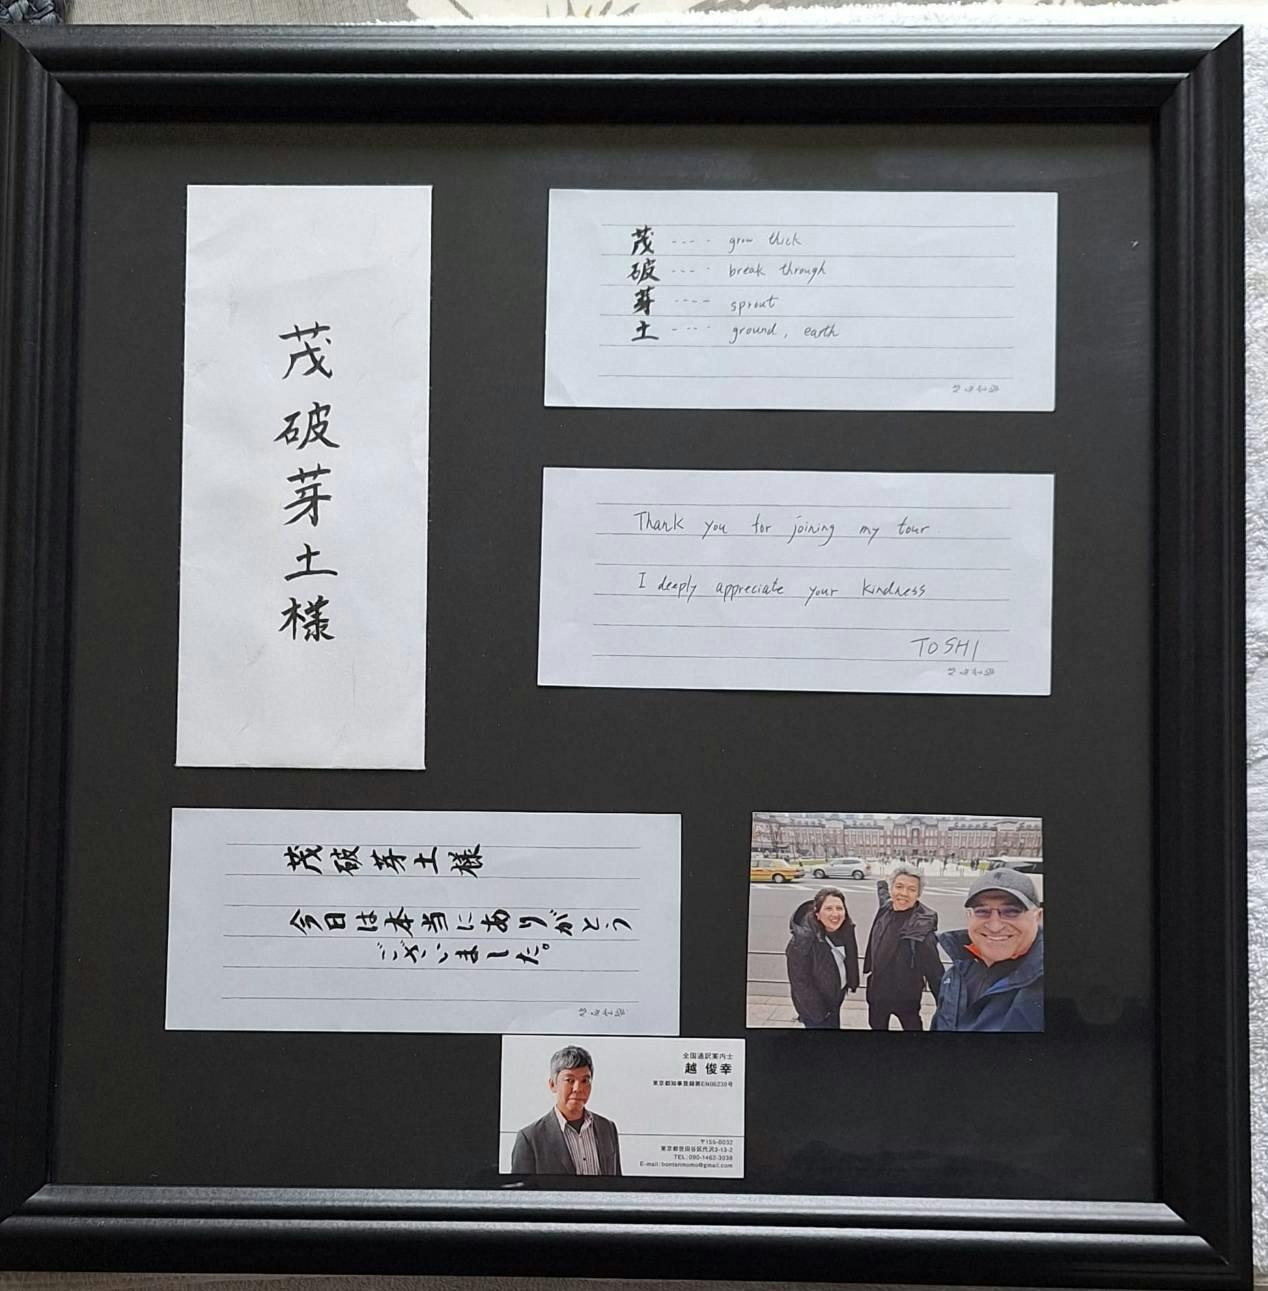 茂破芽土様
茂 ---- grow thick
破 ---- break through
芽 ---- sprout
土 ---- ground, earth
Thank you for joining my tour
I deeply appreciate your kindness
TOSHI
茂破芽土様
今日は本当にありがとう
ございました。
全国通訳案内士
越 俊幸
東京都知事登録第EN06230号
〒155-0032
東京都世田谷区代沢3-13-2
TEL:090-1462-3038
E-mail:bontanmomo@gmail.com